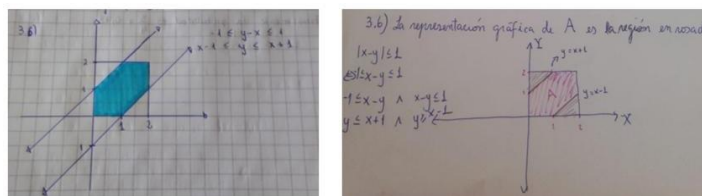 3.6)
-1 ≤ y-x ≤ 1
x-1 ≤ y ≤ x+1
2
1
1
2
1
3.6) La representación gráfica de A es la región en rosado
|x-y| ≤ 1
-1 ≤ x-y ≤ 1
-1 ≤ x-y ∧ x-y ≤ 1
y ≤ x+1 ∧ y ≥ x-1
Y
y=x+1
2
1
A
y=x-1
X
1
2